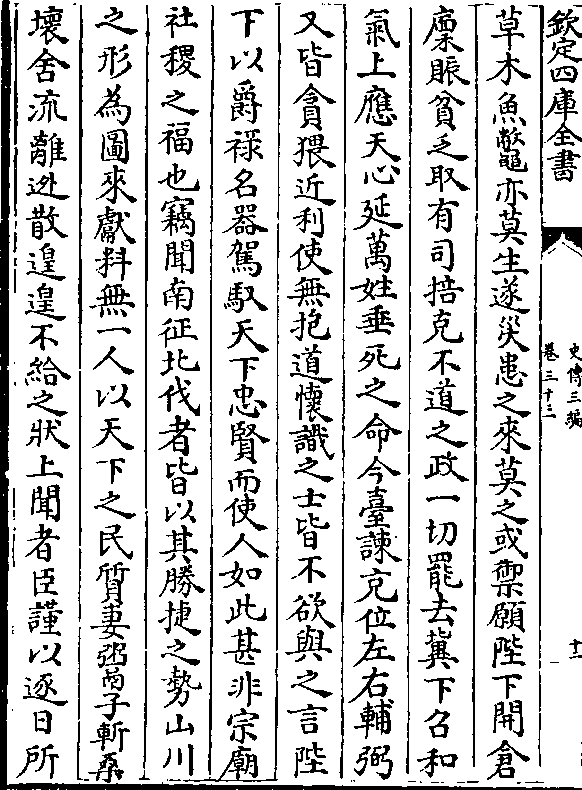 欽定四庫全書
史傳三編
卷三十三
十二
草木魚鼈亦莫生遂災患之來莫之或禦願陛下開倉
廩賑貧乏取有司掊克不道之政一切罷去冀下召和
氣上應天心延萬姓垂死之命今臺諫充位左右輔弼
又皆貪猥近利使無抱道懷識之士皆不欲與之言陛
下以爵祿名器駕馭天下忠賢而使人如此甚非宗廟
社稷之福也竊聞南征北伐者皆以其勝捷之勢山川
之形為圖來獻料無一人以天下之民質妻鬻子斬桑
壞舍流離逃散遑遑不給之狀上聞者臣謹以逐日所